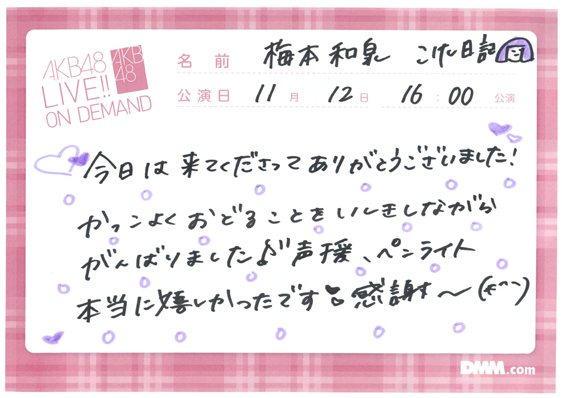 AKB48
LIVE!!
ON DEMAND
AKB
48
名前 梅本和泉 こけし日記
公演日 11月 12日 16:00 公演
今日は来てくださってありがとうございました!
かっこよくおどることをいしきしながら
がんばりました♪声援、ペンライト
本当に嬉しかったです 感謝〜(*^^)
DMM.com